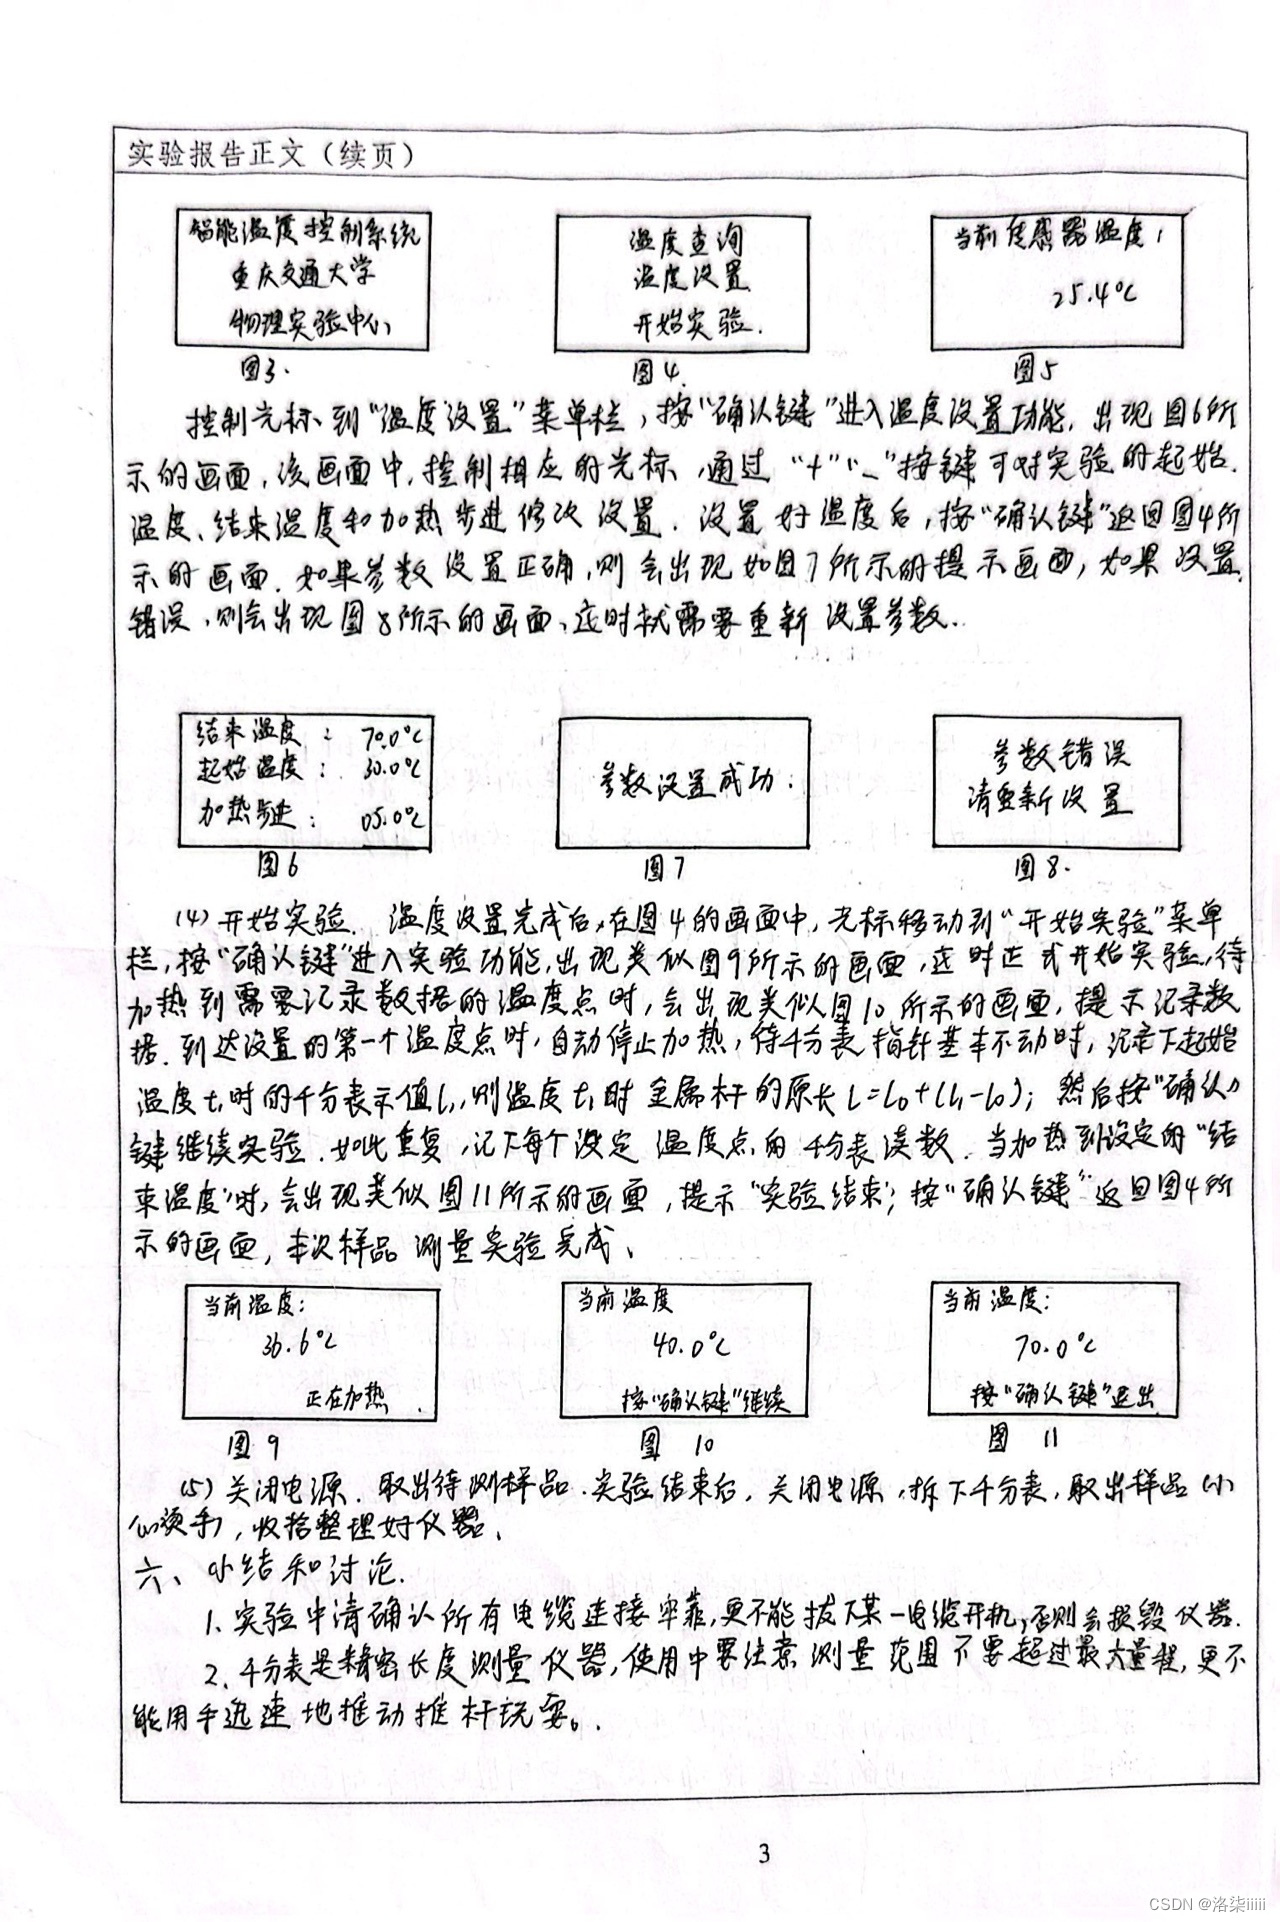 实验报告正文（续页）
智能温度控制系统
重庆交通大学
物理实验中心
图3.
温度查询
温度设置
开始实验.
图4.
当前传感器温度:
25.4℃
图5
控制光标到“温度设置”菜单栏,按“确认键”进入温度设置功能.出现图6所
示的画面,该画面中,控制相应的光标,通过“+”“-”按键可对实验的起始
温度、结束温度和加热步进修改设置.设置好温度后,按“确认键”返回图4所
示的画面.如果参数设置正确,则会出现如图7所示的提示画面,如果设置
错误,则会出现图8所示的画面、这时就需要重新设置参数.
结束温度: 70.0℃
起始温度: 30.0℃
加热步进: 05.0℃
图6
参数设置成功.
图7
参数错误
请重新设置
图8.
(4)开始实验. 温度设置完成后,在图4的画面中,光标移动到“开始实验”菜单
栏,按“确认键”进入实验功能,出现类似图9所示的画面,这时正式开始实验,待
加热到需要记录数据的温度点时,会出现类似图10所示的画面,提示记录数
据.到达设置的第一个温度点时,自动停止加热,待千分表指针基本不动时,记录下起始
温度t₁时的千分表示值l₁,则温度t₁时金属杆的原长L=L0+(l1-l0);然后按“确认”
键继续实验.如此重复,记下每个设定温度点的千分表读数.当加热到设定的“结
束温度”时,会出现类似图11所示的画面,提示“实验结束”;按“确认键”返回图4所
示的画面,本次样品测量实验完成、
当前温度:
36.6℃
正在加热.
图9
当前温度
40.0℃
按“确认键”继续
图10
当前温度:
70.0℃
按“确认键”退出
图11
(5)关闭电源.取出待测样品.实验结束后,关闭电源,拆下千分表,取出样品(小
心烫手),收拾整理好仪器、
六、小结和讨论.
1.实验中请确认所有电缆连接牢靠,更不能拔下某一电缆开机,否则会损毁仪器.
2.千分表是精密长度测量仪器,使用中要注意测量范围不要超过最大量程,更不
能用手迅速地推动推杆玩耍。
3
CSDN @洛柒iiiii